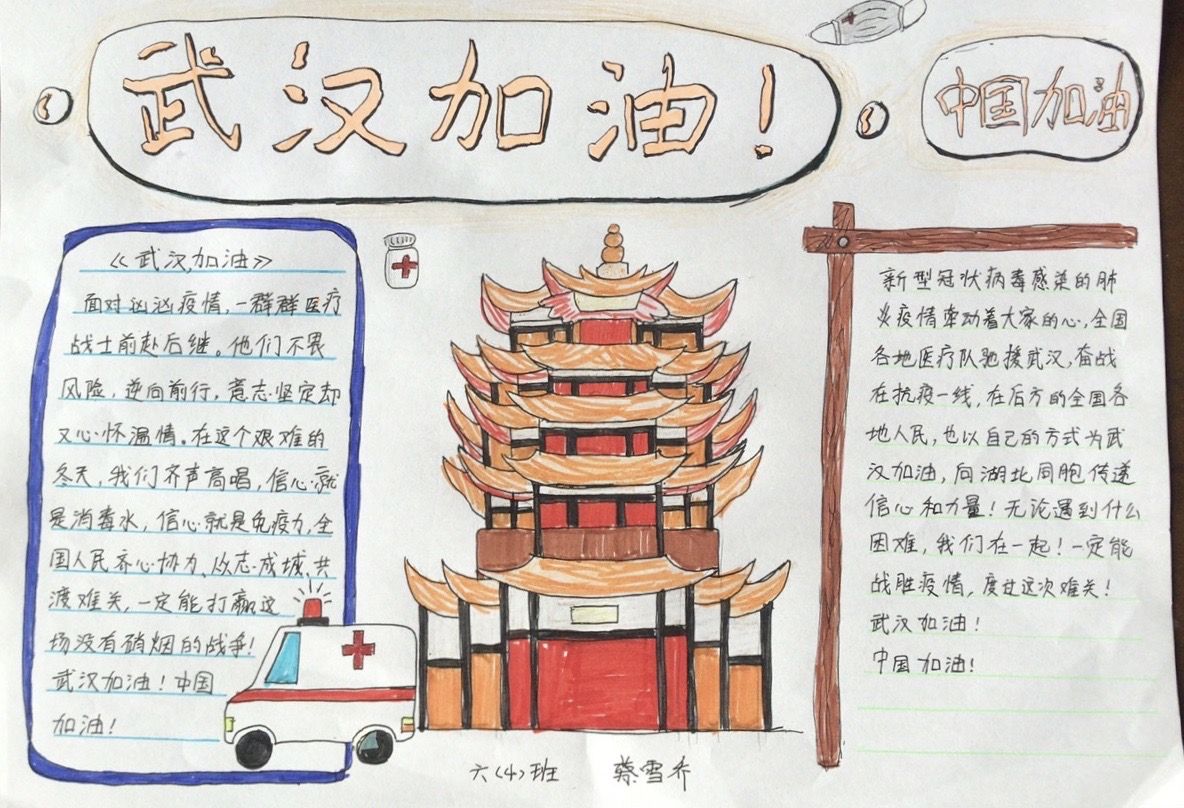 武汉加油!
中国加油
《武汉加油》
面对汹汹疫情,一群群医疗
战士前赴后继。他们不畏
风险,逆向前行,意志坚定却
又心怀温情。在这个艰难的
冬天,我们齐声高唱,信心就
是消毒水,信心就是免疫力,全
国人民齐心协力、众志成城、共
渡难关,一定能打赢这
场没有硝烟的战争!
武汉加油!中国
加油!
新型冠状病毒感染的肺
炎疫情牵动着大家的心,全国
各地医疗队驰援武汉,奋战
在抗疫一线,在后方的全国各
地人民,也以自己的方式为武
汉加油,向湖北同胞传递
信心和力量!无论遇到什么
困难,我们在一起!一定能
战胜疫情,度过这次难关!
武汉加油!
中国加油!
六(4)班 蔡雪乔